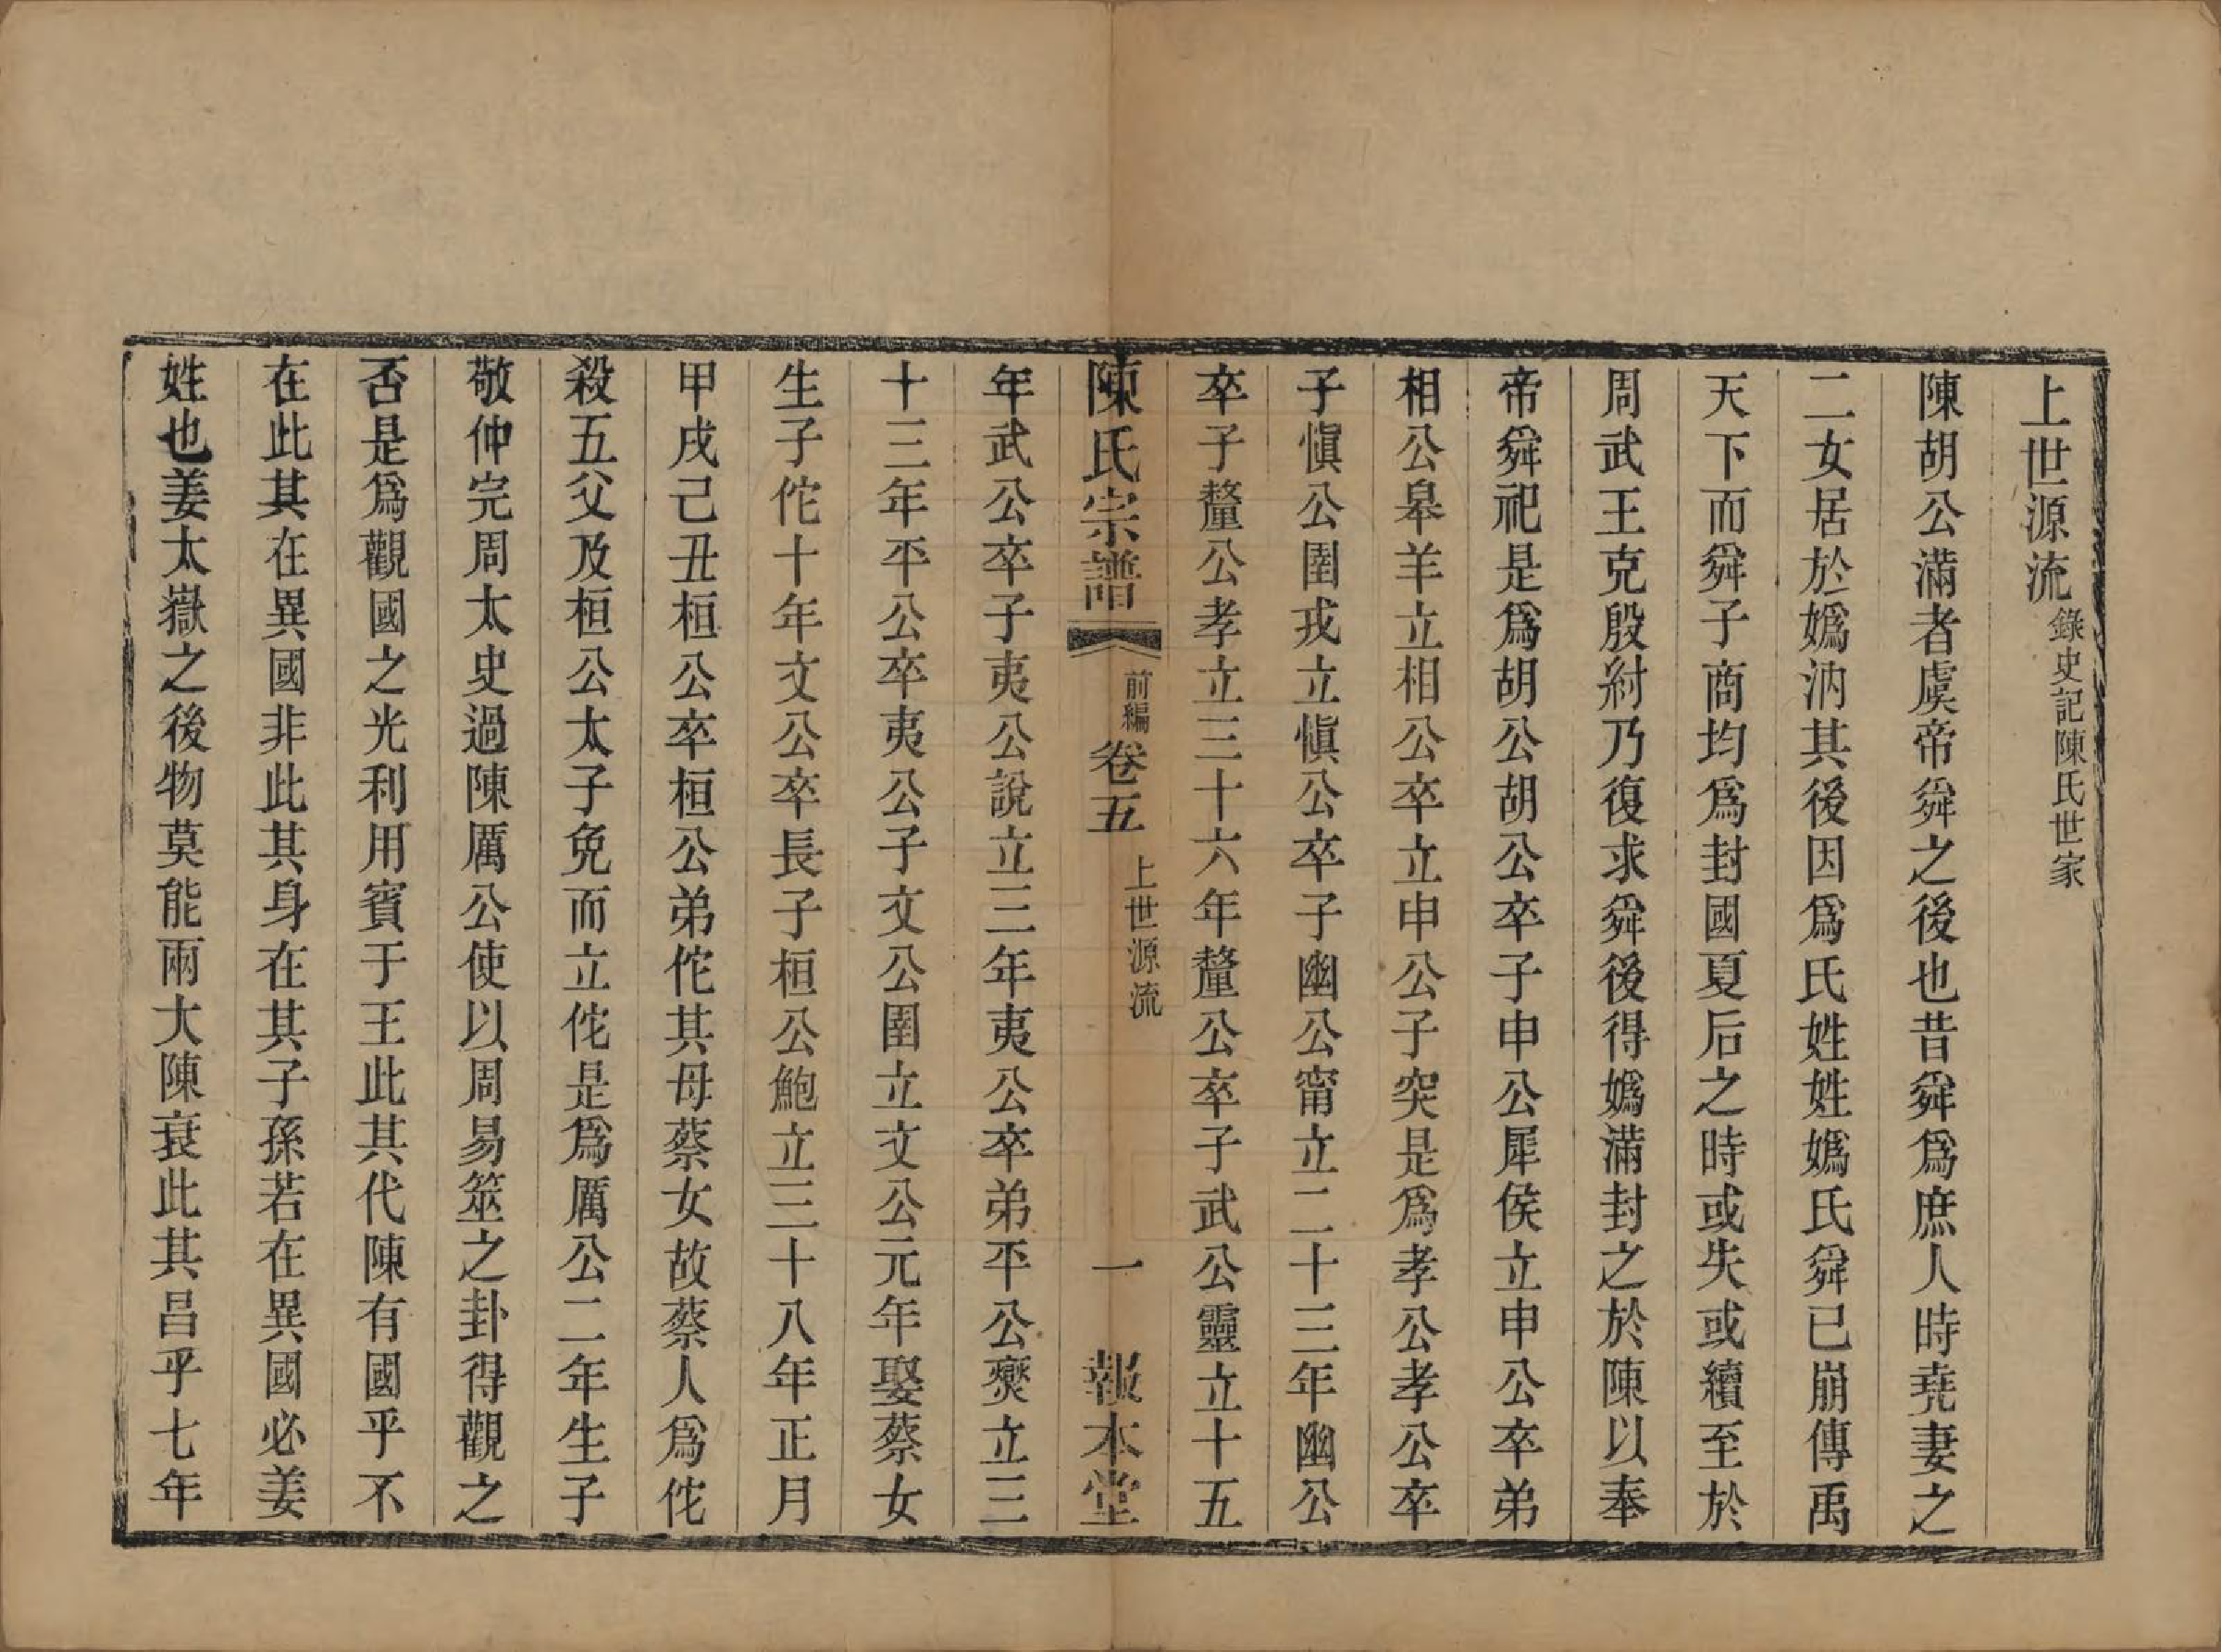 上世源流錄史記陳氏世家
陳胡公滿者虞帝舜之後也昔舜爲庶人時堯妻之
二女居於嬀汭其後因爲氏姓姓嬀氏舜已崩傳禹
天下而舜子商均爲封國夏后之時或失或續至於
周武王克殷紂乃復求舜後得嬀滿封之於陳以奉
帝舜祀是爲胡公胡公卒子申公犀侯立申公卒弟
相公皋羊立相公卒立申公子突是爲孝公孝公卒
子愼公圉戎立愼公卒子幽公甯立二十三年幽公
卒子釐公孝立三十六年釐公卒子武公靈立十五
陳氏宗譜 前編 卷五 上世源流 一 報本堂
年武公卒子夷公說立三年夷公卒弟平公爕立三
十三年平公卒夷公子文公圉立文公元年娶蔡女
生子佗十年文公卒長子桓公鮑立三十八年正月
甲戌己丑桓公卒桓公弟佗其母蔡女故蔡人爲佗
殺五父及桓公太子免而立佗是爲厲公二年生子
敬仲完周太史過陳厲公使以周易筮之卦得觀之
否是爲觀國之光利用賓于王此其代陳有國乎不
在此其在異國非此其身在其子孫若在異國必姜
姓也姜太嶽之後物莫能兩大陳衰此其昌乎七年